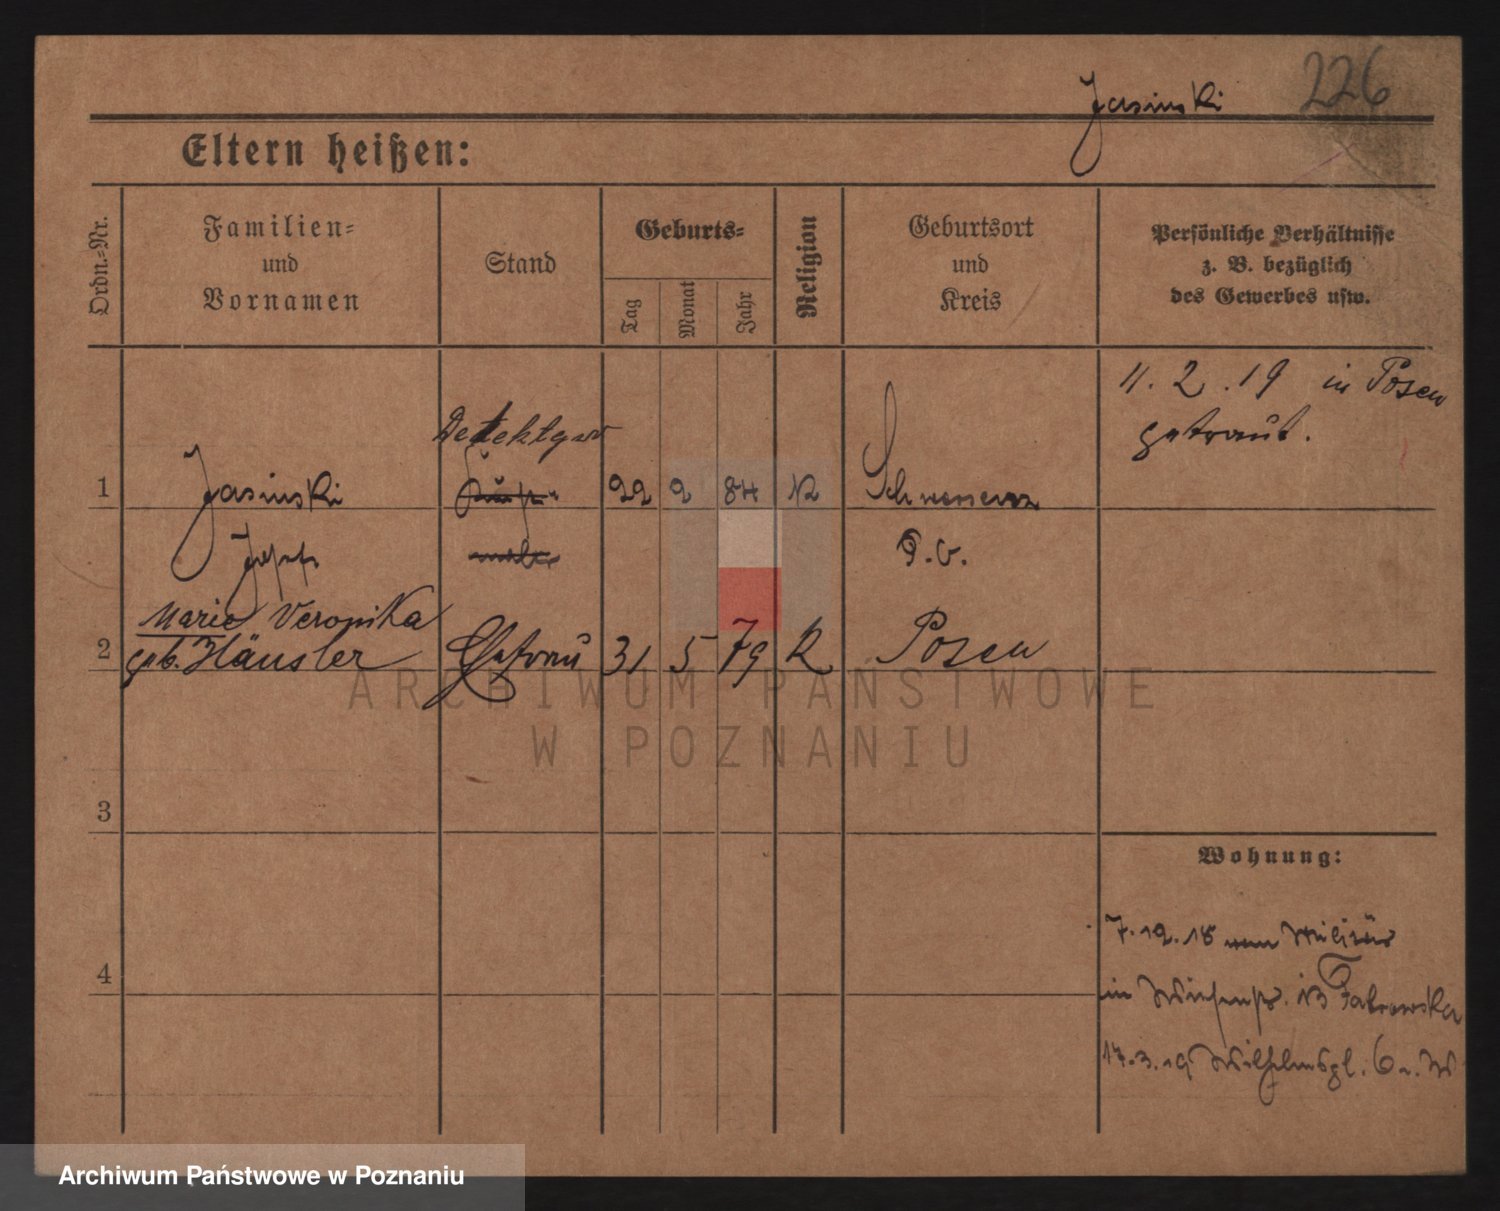 226
Jasinski
Eltern heißen:
Ordn.-Nr.
Familien-
und
Vornamen
Stand
Geburts-
Tag
Monat
Jahr
Religion
Geburtsort
und
Kreis
Persönliche Verhältnisse
z. B. bezüglich
des Gewerbes usw.
11. 2. 19 in Posen
getraut.
Detektev
1 Jasinski 22 2 84 K Schwersenz
Josef P. O.
Marie Veronika
2 geb. Häusler Ehefrau 31 5 79 K Posen
3
4
Wohnung:
7.12.18 vom Militär
in Wiesenstr. 13 Fabrowska
17.3.19 Wilhelmspl. 6 W
ARCHIWUM PAŃSTWOWE
W POZNANIU
Archiwum Państwowe w Poznaniu